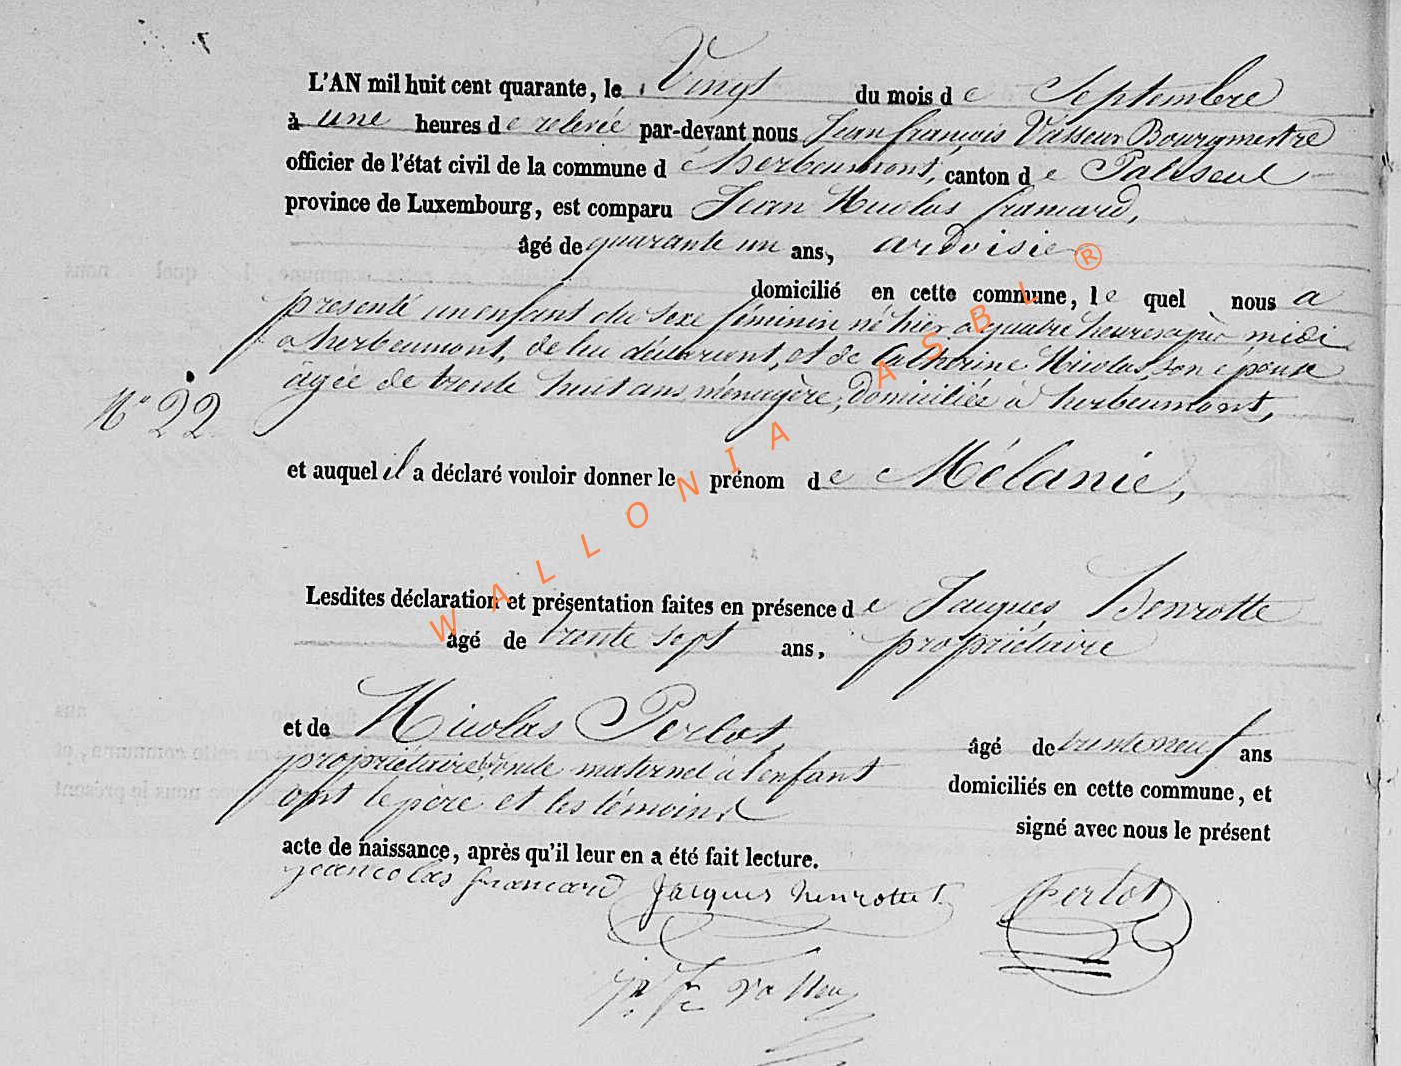 L'AN mil huit cent quarante, le Vingt du mois de Septembre
à une heures de relevée par-devant nous Jean françois Vasseur Bourgmestre
officier de l'état civil de la commune d'herbeumont, canton de Paliseul
province de Luxembourg, est comparu Jean Nicolas framard,
âgé de quarante un ans, ardoisier
domicilié en cette commune, le quel nous a
presenté un enfant du sexe féminin né hier à quatre heures après midi
a herbeumont, de lui déclarant, et de Catherine Nicolas, son épouse
âgée de trente huit ans ménagère, domiciliée à herbeumont,
N° 22
et auquel il a déclaré vouloir donner le prénom de Mélanie,
Lesdites déclaration et présentation faites en présence de Jacques Henrotte
âgé de trente sept ans, propriétaire
et de Nicolas Perlot, âgé de trente neuf ans
propriétaire, oncle maternel à l'enfant domiciliés en cette commune, et
ont le père et les témoins signé avec nous le présent
acte de naissance, après qu'il leur en a été fait lecture.
jeancolas framard Jacques henrottet perlot
J. F. Vasseur
WALLONIA ASBL ®